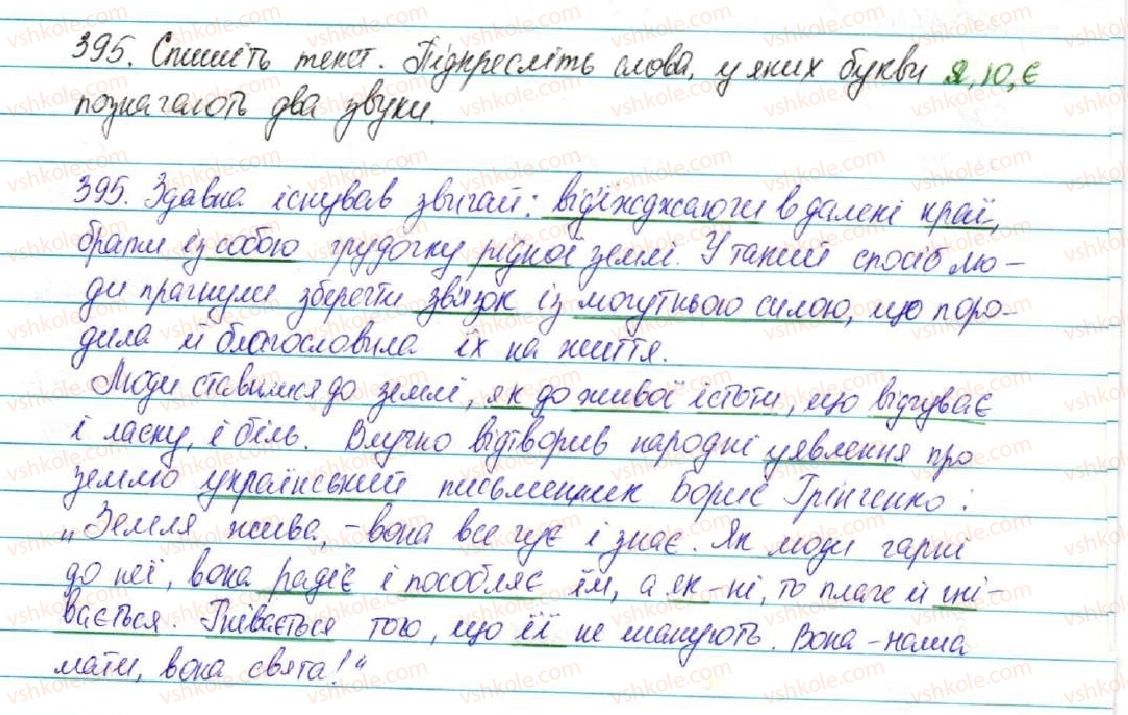 395. Спишіть текст. Підкресліть слова, у яких букви я, ю, є
позначають два звуки.
395. Здавна існував звичай: від'їжджаючи в далені краї,
брати із собою грудочку рідної землі. У такий спосіб лю-
ди прагнули зберегти зв'язок із могутньою силою, що поро-
дила й благословила їх на життя.
Люди ставились до землі, як до живої істоти, що відчуває
і ласку, і біль. Влучно відтворив народні уявлення про
землю український письменник Борис Грінченко:
"Земля жива, - вона все чує і знає. Як люди гарні
до неї, вона радіє і пособляє їм, а як - ні, то плаче й гні-
вається. Гнівається того, що її не шанують. Вона - наша
мати, вона свята!"